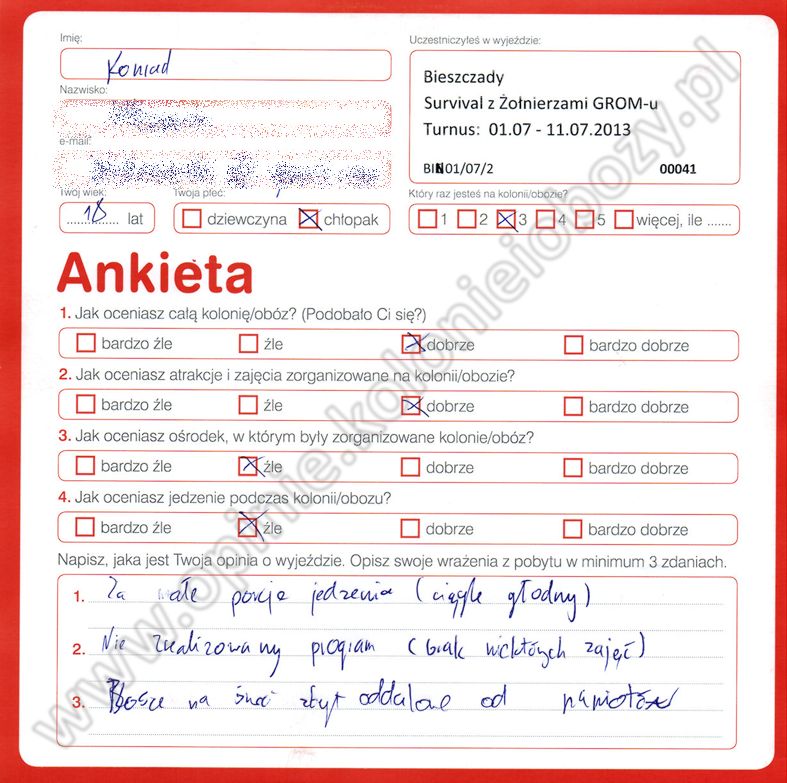 Imię:
Konrad
Nazwisko:
e-mail:
Twój wiek:
18 lat
Twoja płeć:
dziewczyna chłopak
Uczestniczyłeś w wyjeździe:
Bieszczady
Survival z Żołnierzami GROM-u
Turnus: 01.07 - 11.07.2013
01/07/2 00041
Który raz jesteś na kolonii/obozie?
1 2 3 4 5 więcej, ile .......
Ankieta
1. Jak oceniasz całą kolonię/obóz? (Podobało Ci się?)
bardzo źle źle dobrze bardzo dobrze
2. Jak oceniasz atrakcje i zajęcia zorganizowane na kolonii/obozie?
bardzo źle źle dobrze bardzo dobrze
3. Jak oceniasz ośrodek, w którym były zorganizowane kolonie/obóz?
bardzo źle źle dobrze bardzo dobrze
4. Jak oceniasz jedzenie podczas kolonii/obozu?
bardzo źle źle dobrze bardzo dobrze
Napisz, jaka jest Twoja opinia o wyjeździe. Opisz swoje wrażenia z pobytu w minimum 3 zdaniach.
1. Za małe porcje jedzenia (ciągle głodny)
2. Nie zrealizowany program (brak niektórych zajęć)
3. na śmieci zbyt oddalone od namiotów
www.opinie.kolonieiobozy.pl